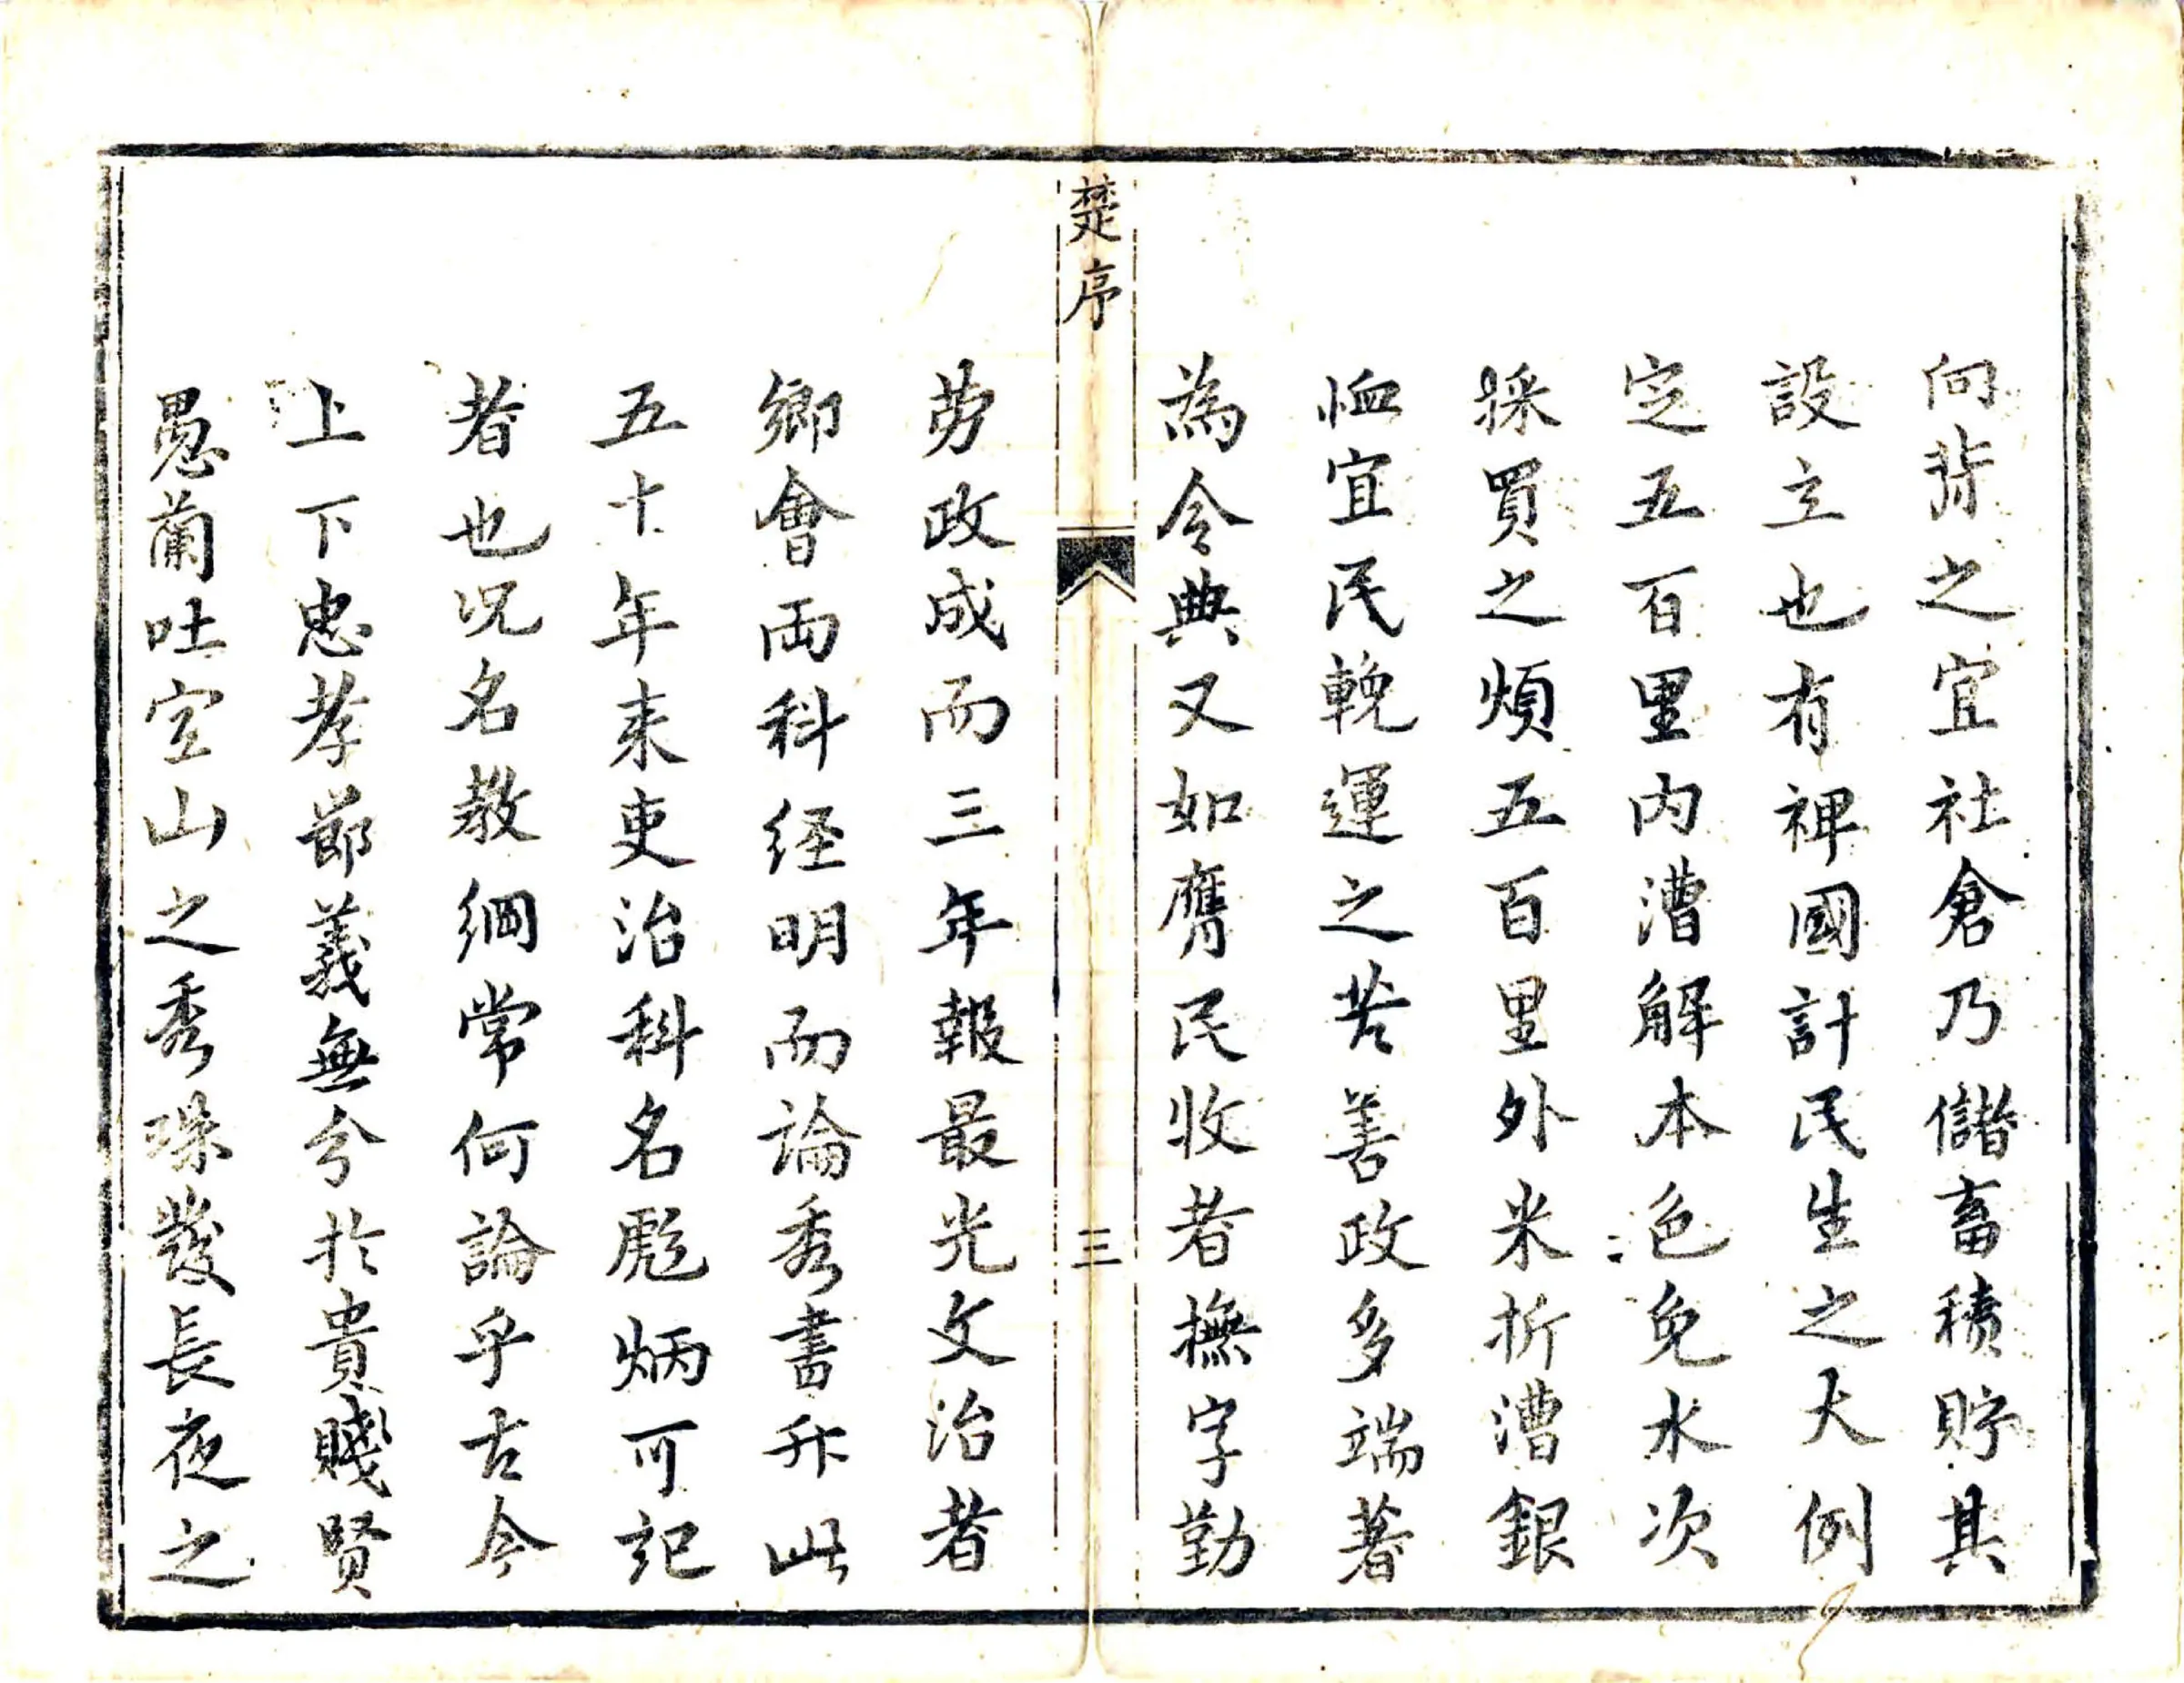 向背之宜社倉乃儲畜積貯其
設立也有裨國計民生之大例
定五百里内漕解本色免水次
採買之煩五百里外米折漕銀
恤宜民輓運之苦善政多端著
為令典又如膺民牧者撫字勤
楚序
三
劳政成而三年報最光文治者
鄉會両科経明而論秀書升此
五十年来吏治科名彪炳可記
者也况名教綱常何論乎古今
上下忠孝節義無分於貴賤賢
愚蘭吐空山之秀珠發長夜之